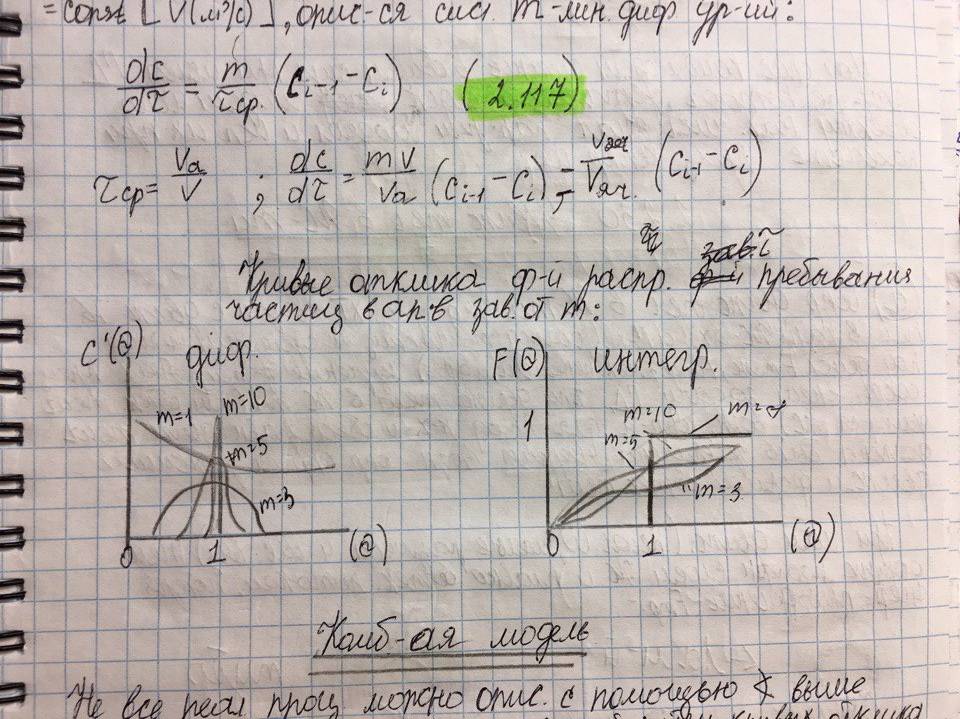 =const [V(м³/с)], опис-ся сист. m-лин. диф ур-ий:
dc/dτ = m/τср. (Ci-1 - Ci) (2.117)
τср = Va/V ; dc/dτ = mV/Va (Ci-1 - Ci) , = V/Vяч. (Ci-1 - Ci)
Кривые отклика ф-й распр. τ пребывания
частиц в ап-в зав. от m:
C'(Θ) диф. F(Θ) интегр.
m=1 m=10 m=5 m=3
1 m=10 m=∞ m=5 m=3
0 1 (Θ) 0 1 (Θ)
Комб-ая модель
Не все реал проц можно опис. с помощью выше